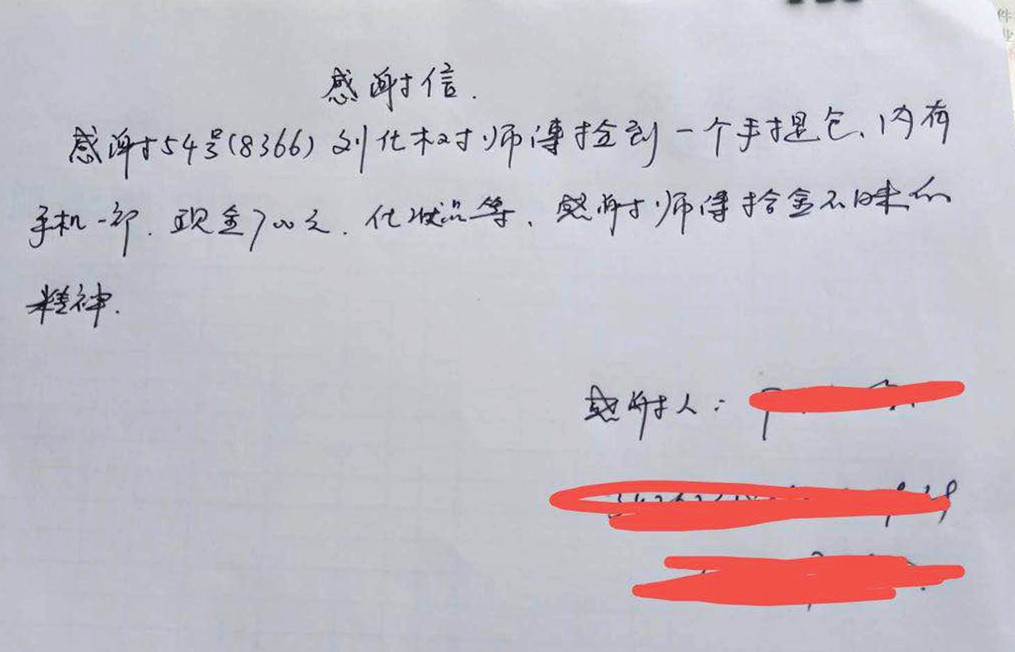 感谢信.
感谢54号(8366)刘化树师傅捡到一个手提包、内有
手机一部.现金700元.化妆品等、感谢师傅拾金不昧的
精神.
感谢人: